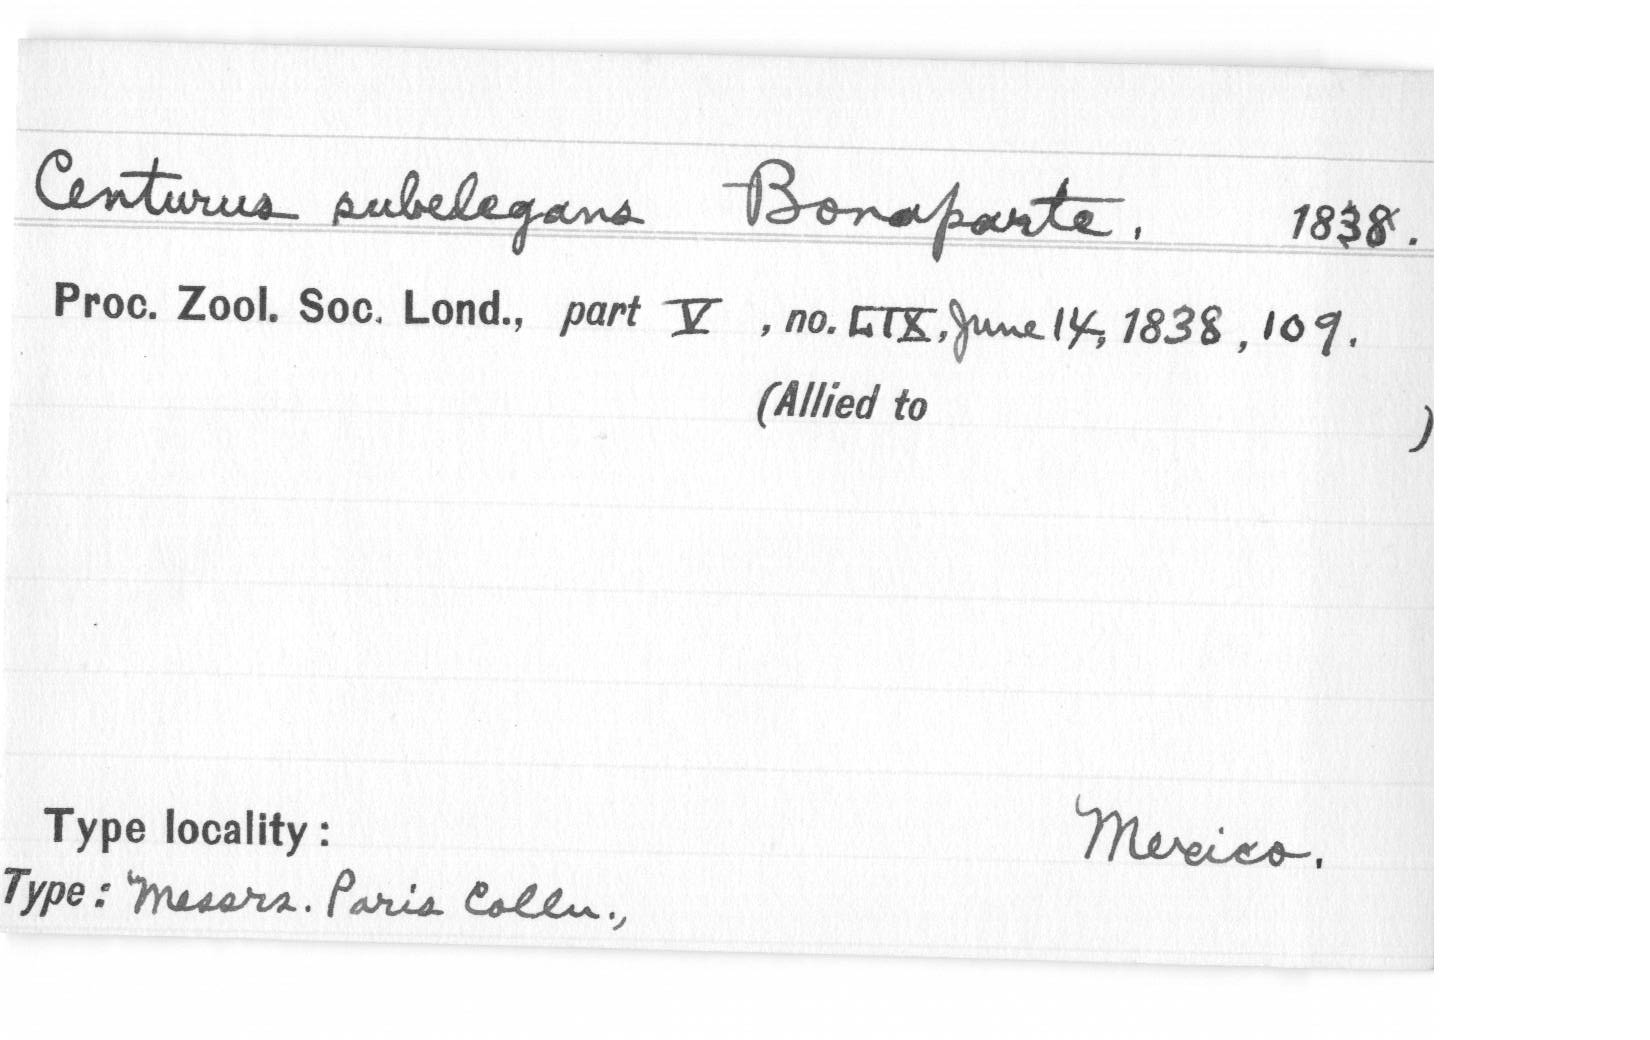 Centurus subelegans Bonaparte. 1838.
Proc. Zool. Soc. Lond., part V, no. LIX, June 14, 1838, 109.
(Allied to )
Type locality: Mexico.
Type: Messrs. Paris Colln.,